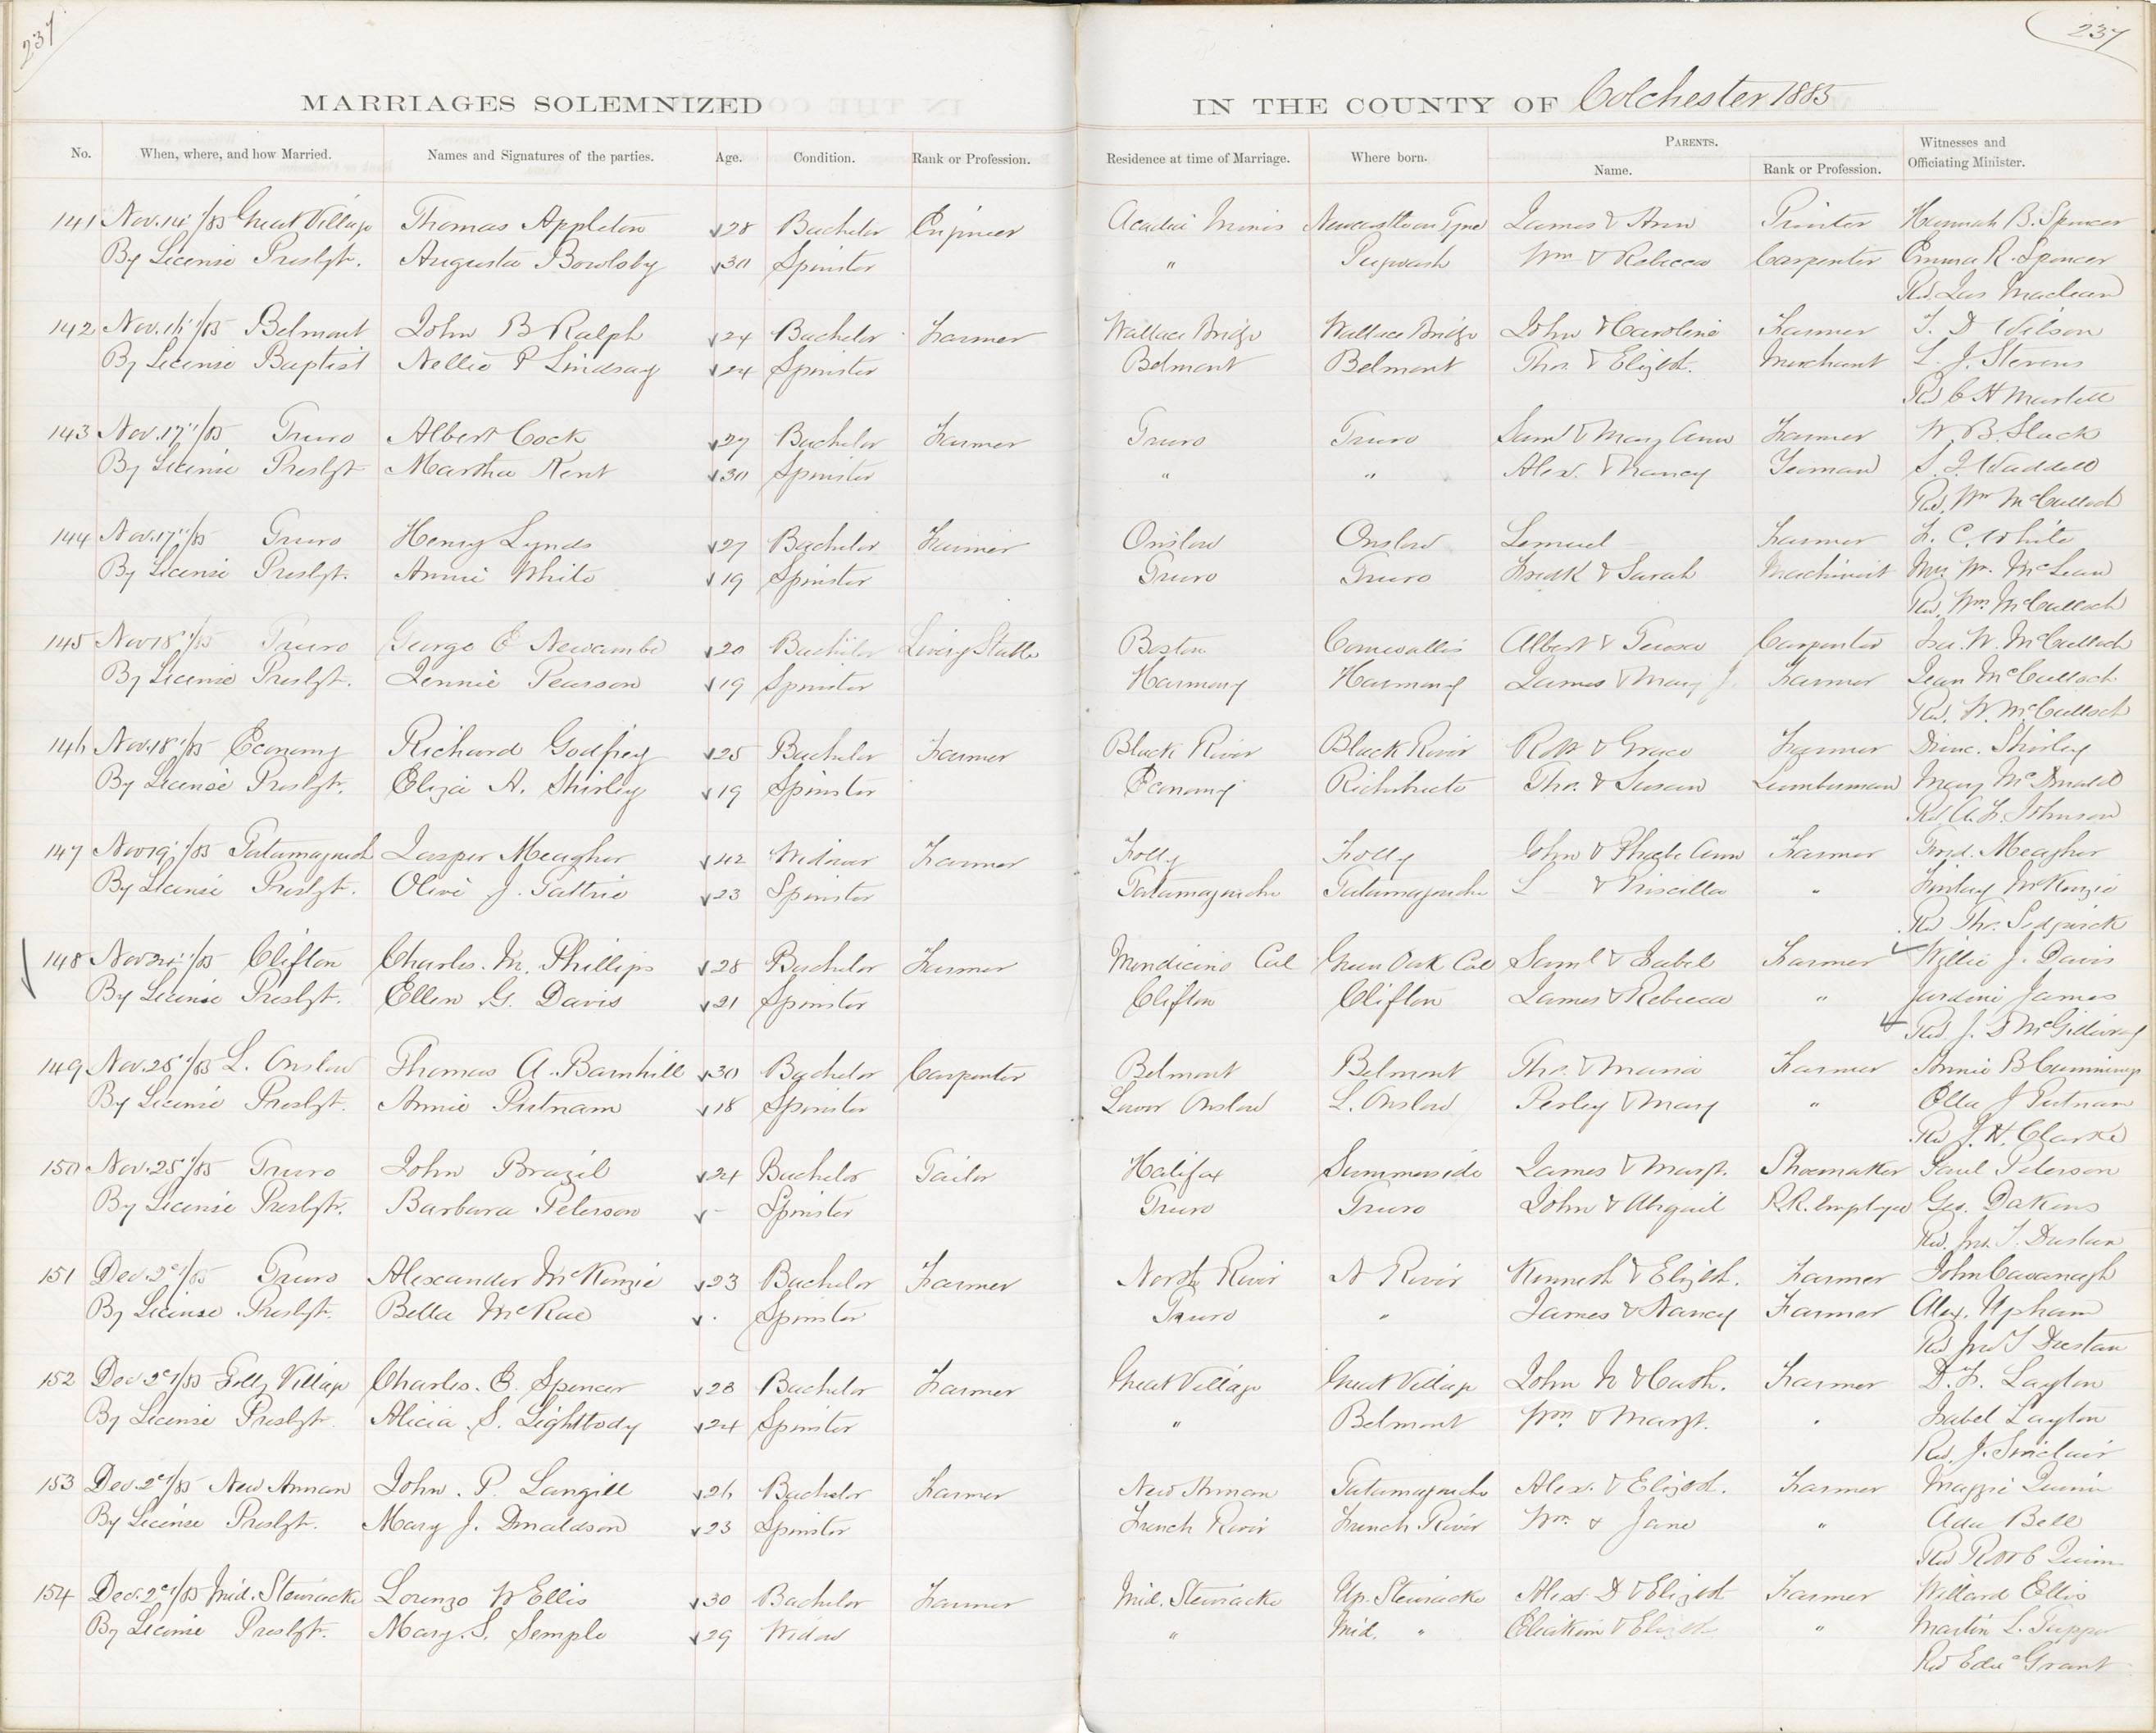 237
237
MARRIAGES SOLEMNIZED IN THE COUNTY OF Colchester 1885
No. When, where, and how Married. Names and Signatures of the parties. Age. Condition. Rank or Profession. Residence at time of Marriage. Where born. PARENTS. Name. Rank or Profession. Witnesses and Officiating Minister.
141 Nov. 14"/85 Great Village Thomas Appleton 28 Bachelor Engineer Acadia Mines Newcastle on Tyne James & Ann Printer Hannah B. Spencer
By License Presbyt. Augusta Bowlsby 30 Spinster " Pugwash Wm & Rebecca Carpenter Emma R. Spencer
Rev. Jas Maclean
142 Nov. 16"/85 Belmont John B Ralph 24 Bachelor Farmer Wallace Bridge Wallace Bridge John & Caroline Farmer T. D Wilson
By License Baptist Nellie P Lindsay 24 Spinster Belmont Belmont Thos. & Elizbth. Merchant L. J. Stevens
Rev C H Martell
143 Nov. 17"/85 Truro Albert Cock 27 Bachelor Farmer Truro Truro Saml & Mary Ann Farmer W. B. Slack
By License Presbyt Martha Kent 30 Spinster " " Alex. & Nancy Yeoman S. J Waddell
Rev. Wm McCulloch
144 Nov. 17"/85 Truro Henry Lynds 27 Bachelor Farmer Onslow Onslow Lemuel Farmer F. C. White
By License Presbyt. Annie White 19 Spinster Truro Truro Fredk & Sarah Machinist Mrs Wm. McLean
Rev. Wm McCulloch
145 Nov 18"/85 Truro George E Newcombe 20 Bachelor Livery Stable Boston Cornwallis Albert & Teresa Carpenter Isa. W. McCulloch
By License Presbyt. Jennie Pearson 19 Spinster Harmony Harmony James & Mary J. Farmer Jean McCulloch
Rev. W. McCulloch
146 Nov. 18"/85 Economy Richard Godfrey 25 Bachelor Farmer Black River Black River Robt & Grace Farmer Shirley
By License Presbyt. Eliza A. Shirley 19 Spinster Economy Richibucto Thos. & Susan Lumberman Mary McDonald
Rev A. F. Johnson
147 Nov 19"/85 Tatamagouch Jasper Meagher 42 Widower Farmer Folly Folly John & Phoebe Ann Farmer Ford. Meagher
By License Presbyt. Olive J. Tattrie 23 Spinster Tatamagouche Tatamagouche L & Priscilla " Finlay McKenzie
Rev Thos. Sedgwick
148 Nov 24"/85 Clifton Charles. M. Phillips 28 Bachelor Farmer Mendicino Cal Green Oak Col Saml & Isabel Farmer Willie J. Davis
By License Presbyt. Ellen G. Davis 21 Spinster Clifton Clifton James & Rebecca " Jardine James
Rev. J. D McGillivray
149 Nov. 25"/85 L. Onslow Thomas A. Barnhill 30 Bachelor Carpenter Belmont Belmont Thos. & Maria Farmer Annie B Cummings
By License Presbyt. Annie Putnam 18 Spinster Lower Onslow L. Onslow Perley & Mary " Ella J Putnam
Rev J. H. Clarke
150 Nov. 25"/85 Truro John Brazil 24 Bachelor Tailor Halifax Summerside James & Margt. Shoemaker Saul Peterson
By License Presbyt. Barbara Peterson - Spinster Truro Truro John & Abigail R.R. Employee Geo. Dakens
Rev. Jno. T. Dustan
151 Dec. 2d/85 Truro Alexander McKenzie 23 Bachelor Farmer North River N River Kenneth & Elizbth. Farmer John Cavanagh
By License Presbyt. Bella McRae . Spinster Truro " James & Nancy Farmer Alex. Upham
Rev Jno T Dustan
152 Dec 2d/85 Folly Village Charles. E. Spencer 28 Bachelor Farmer Great Village Great Village John N & Cath. Farmer D. F. Layton
By License Presbyt. Alicia S. Lightbody 24 Spinster " Belmont Wm. & Margt. " Isabel Layton
Rev. J. Sinclair
153 Dec. 2d/85 New Annan John. P. Langill 26 Bachelor Farmer New Annan Tatamagouche Alex. & Elizbth. Farmer Maggie Quinn
By License Presbyt. Mary J. Donaldson 23 Spinster French River French River Wm. & Jane " Ada Bell
Rev Robt C Quinn
154 Dec. 2d/85 Mid. Stewiacke Lorenzo W Ellis 30 Bachelor Farmer Mid. Stewiacke Up. Stewiacke Alex. D & Elizbth Farmer Willard Ellis
By License Presbyt. Mary. S. Semple 29 Widow " Mid. " Eliakim & Elizbth " Martin L. Tupper
Rev Edw Grant